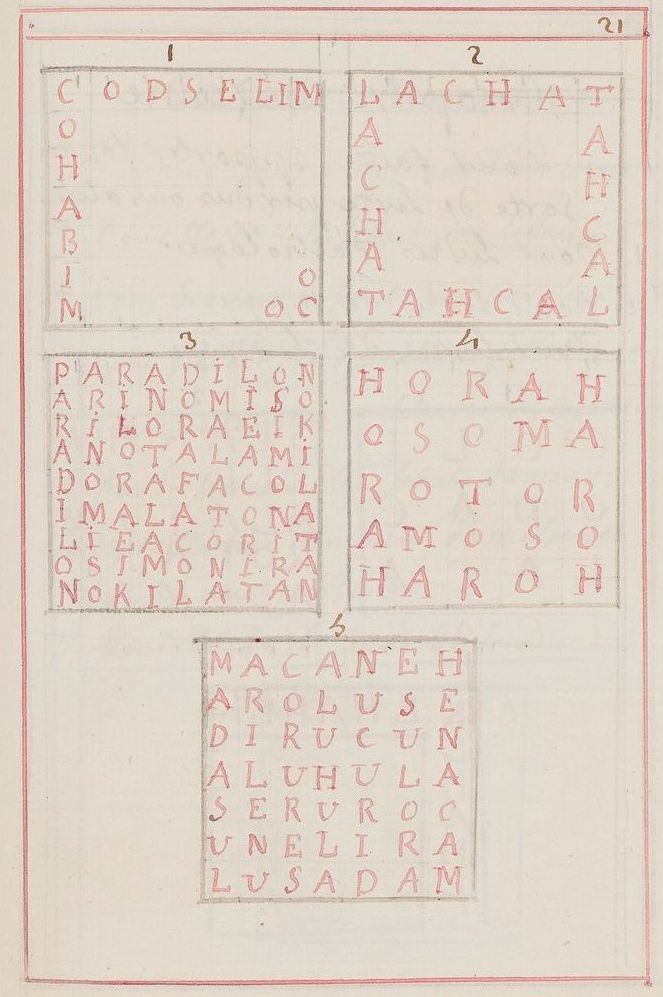 21
1
C O D S E L I M
O
H
A
B
I O
M O C
2
L A C H A T
A A
C H
H C
A A
T A H C A L
3
P A R A D I L O N
A R I N O M I S O
R I L O R A E I K
A N O T A L A M I
D O R A F A C O L
I M A L A T O N A
L I E A C O R I T
O S I M O N I R A
N O K I L A T A N
4
H O R A H
O S O M A
R O T O R
A M O S O
H A R O H
5
M A C A N E H
A R O L U S E
D I R U C U N
A L U H U L A
S E R U R O C
U N E L I R A
L U S A D A M